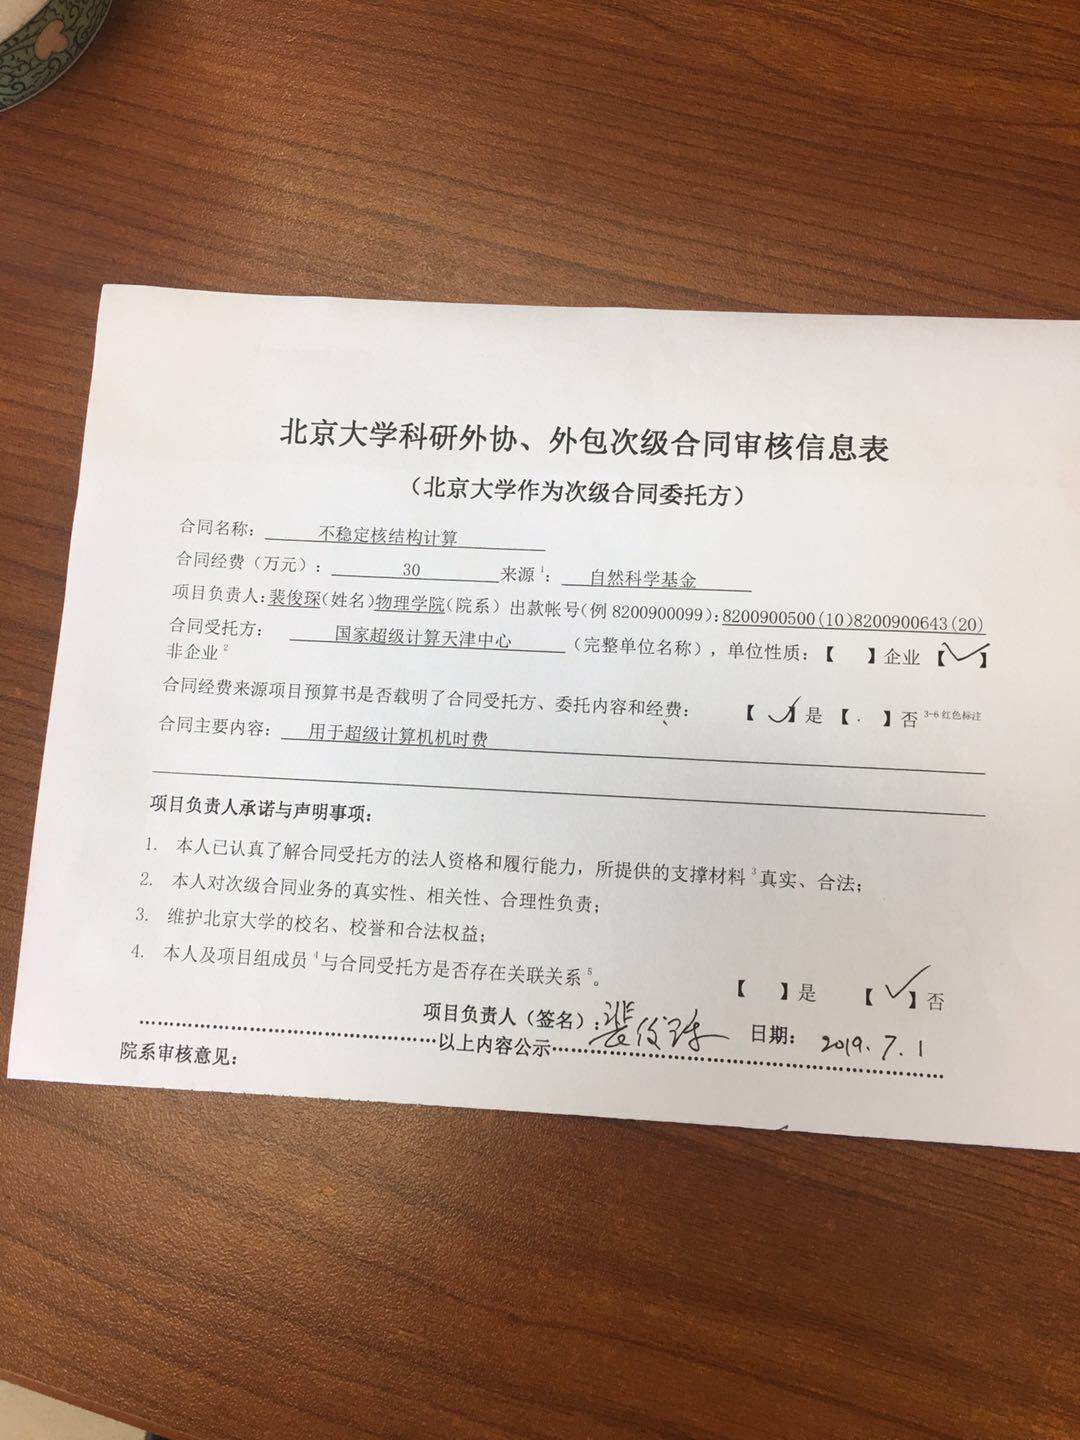 北京大学科研外协、外包次级合同审核信息表
（北京大学作为次级合同委托方）
合同名称： 不稳定核结构计算
合同经费（万元）： 30 来源1： 自然科学基金
项目负责人：裴俊琛（姓名）物理学院（院系）出款帐号（例 8200900099）：8200900500(10)8200900643(20)
合同受托方： 国家超级计算天津中心 （完整单位名称），单位性质：【 】企业 【✓】
非企业2
合同经费来源项目预算书是否载明了合同受托方、委托内容和经费： 【✓】是 【 】否 3-6 红色标注
合同主要内容： 用于超级计算机机时费
项目负责人承诺与声明事项：
1. 本人已认真了解合同受托方的法人资格和履行能力，所提供的支撑材料3真实、合法；
2. 本人对次级合同业务的真实性、相关性、合理性负责；
3. 维护北京大学的校名、校誉和合法权益；
4. 本人及项目组成员4与合同受托方是否存在关联关系5。 【 】是 【✓】否
项目负责人（签名）：裴俊琛 日期： 2019.7.1
………………………………以上内容公示………………………………
院系审核意见：